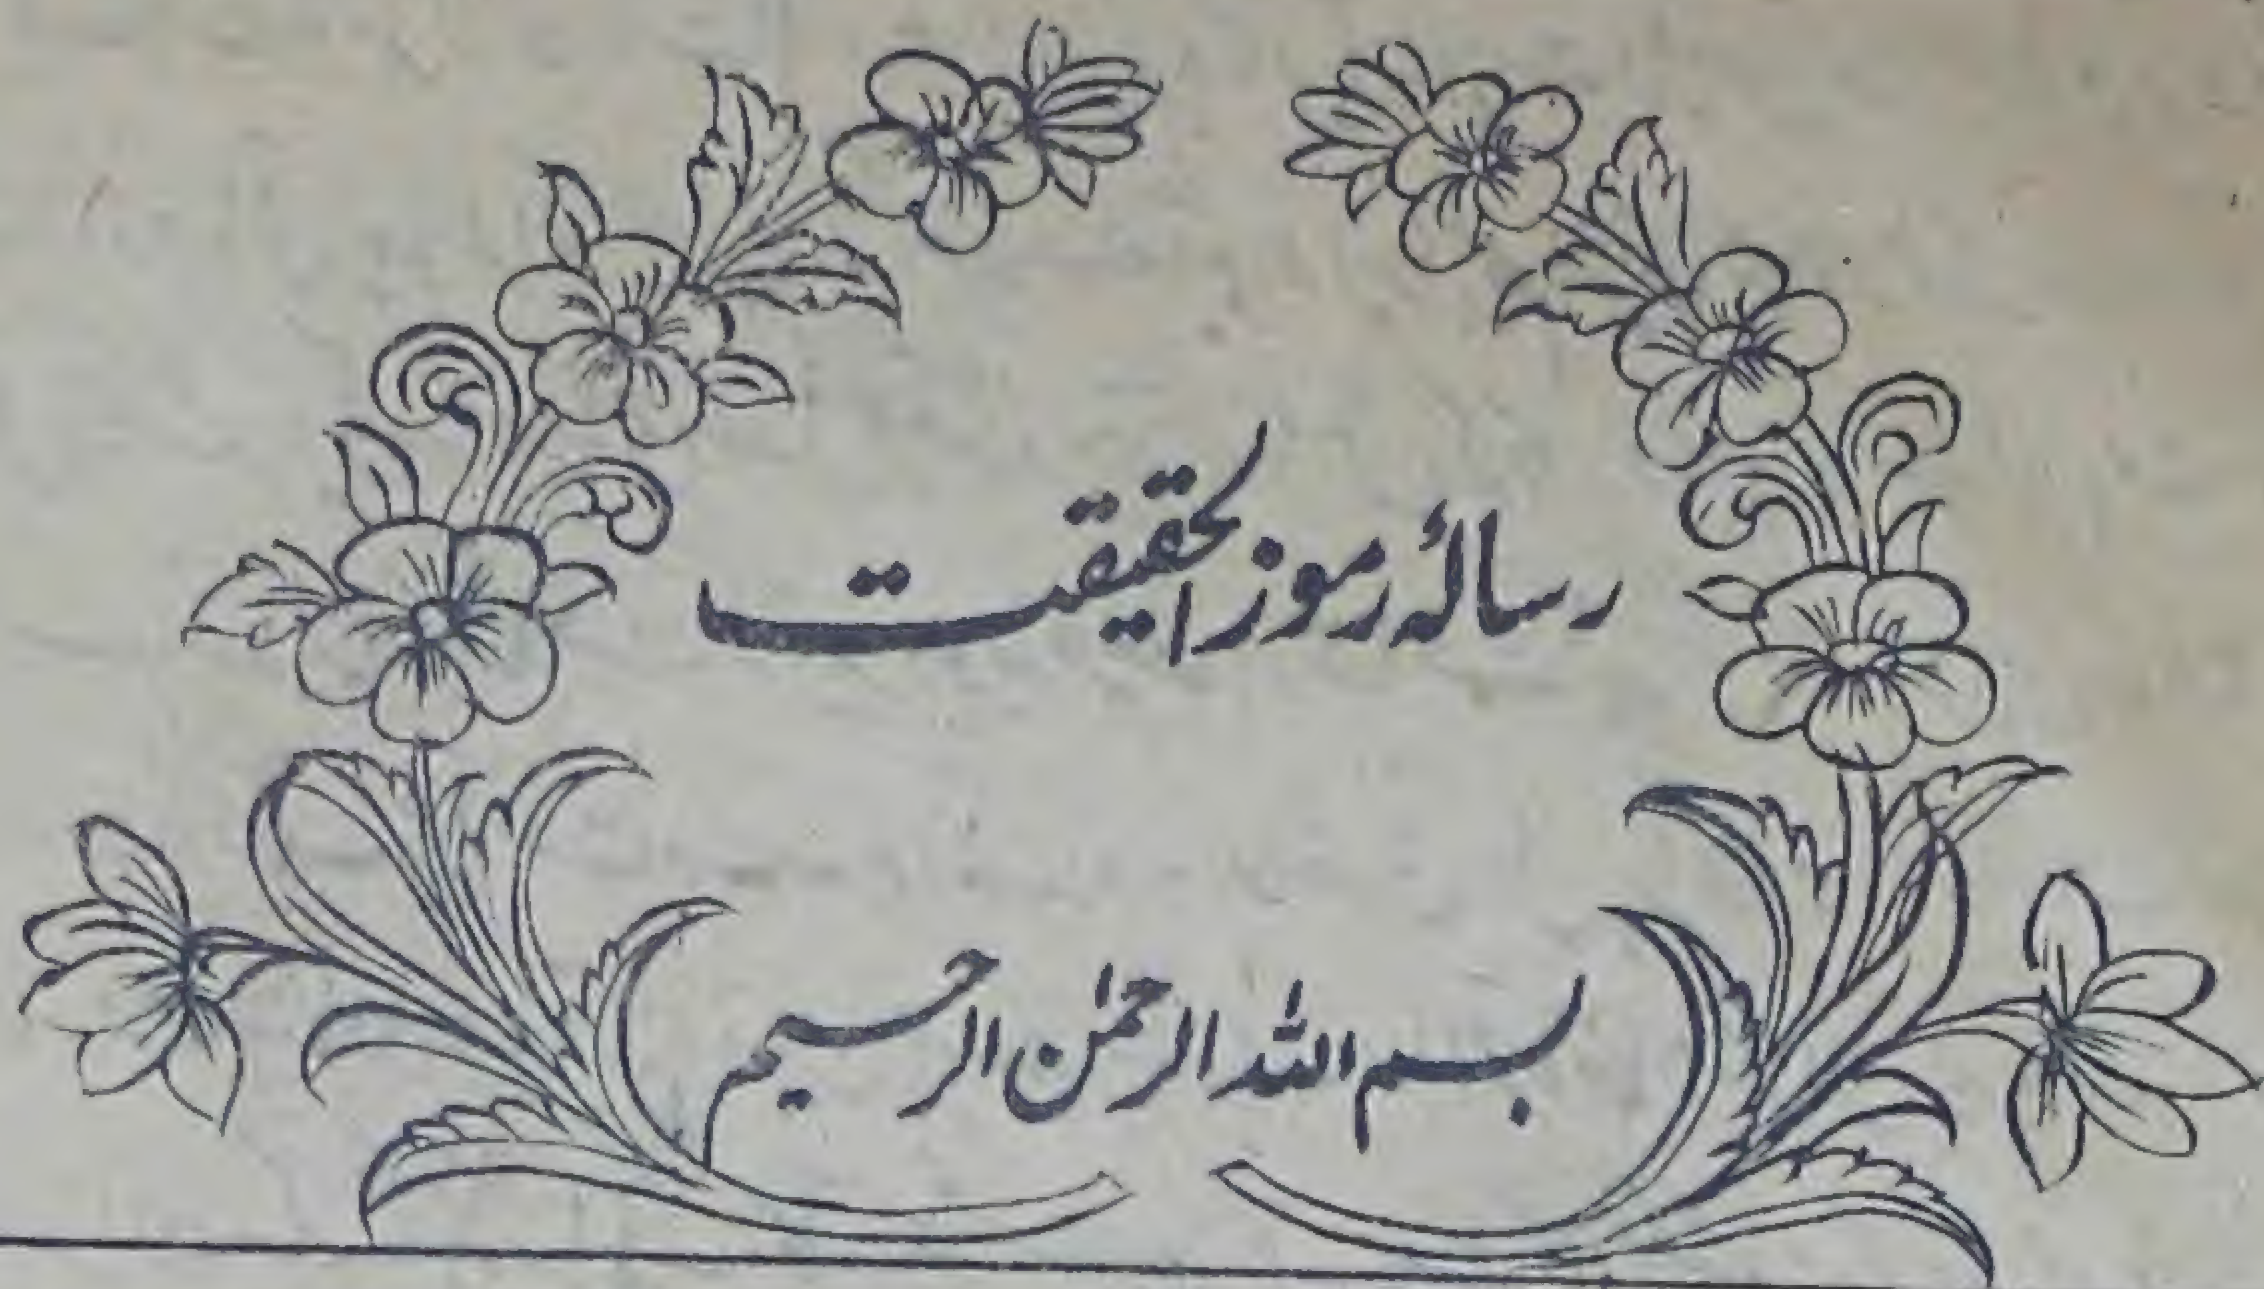 رسالهٔ رموز الحقیقت
بسم الله الرحمٰن الرحیم